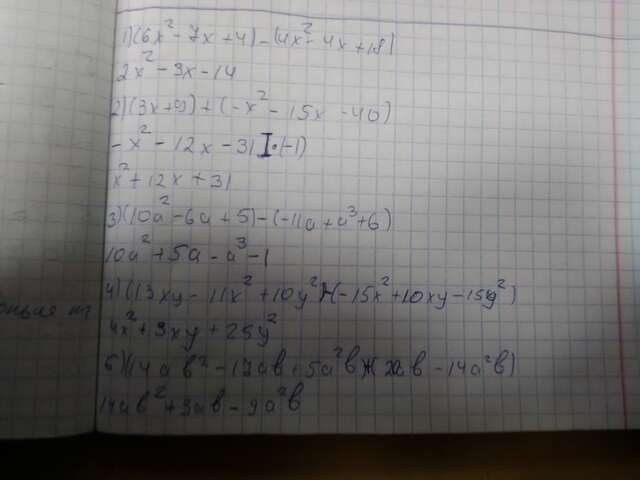 1) (6x² - 7x + 4) - (4x² - 4x + 18)
2x² - 3x - 14
2) (3x + 9) + (-x² - 15x - 40)
-x² - 12x - 31 I·(-1)
x² + 12x + 31
3) (10a² - 6a + 5) - (-11a + a³ + 6)
10a² + 5a - a³ - 1
4) (13xy - 11x² + 10y²) - (-15x² + 10xy - 15y²)
4x² + 3xy + 25y²
5) (14ab² - 17ab + 5a²b) + (20ab - 14a²b)
14ab² + 3ab - 9a²b